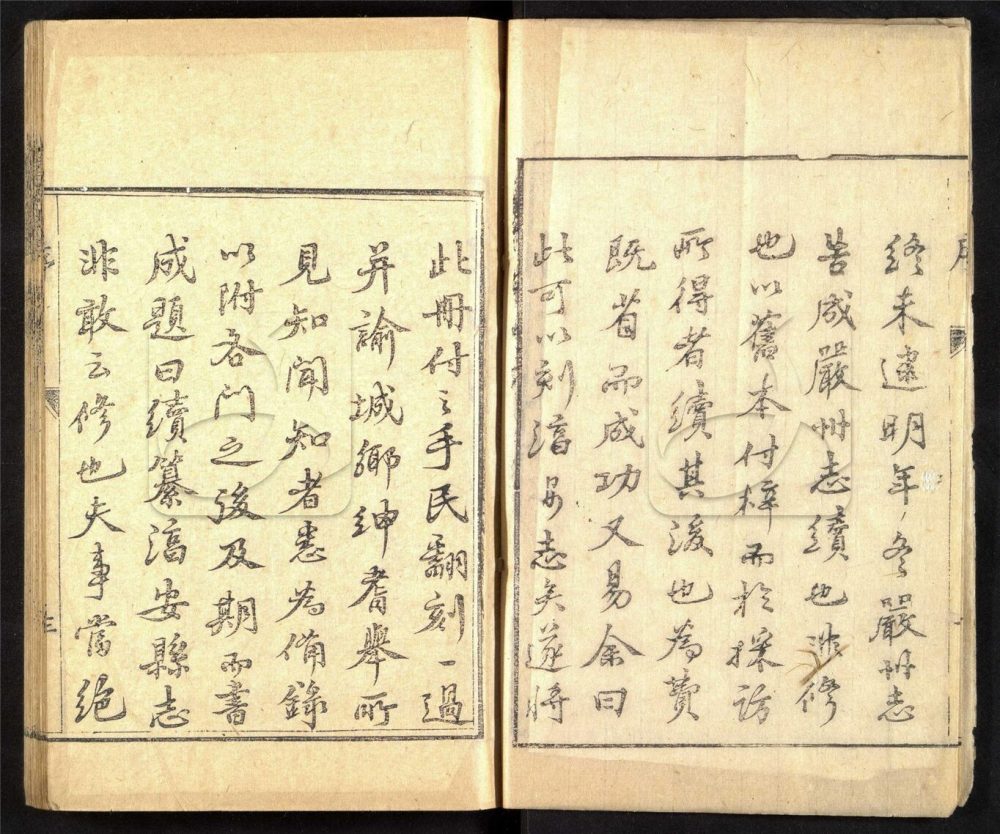 終未逮明年冬嚴州志
告成嚴州志續也非修
也以舊本付梓而於採訪
所得者續其後也為費
既省而成功又易余曰
此可以刻淳安志矣遂將
此冊付之手民翻刻一過
并諭城鄉紳耆舉所
見知聞知者悉為備錄
以附各門之後及期而書
成題曰續纂淳安縣志
非敢云修也夫事當絕